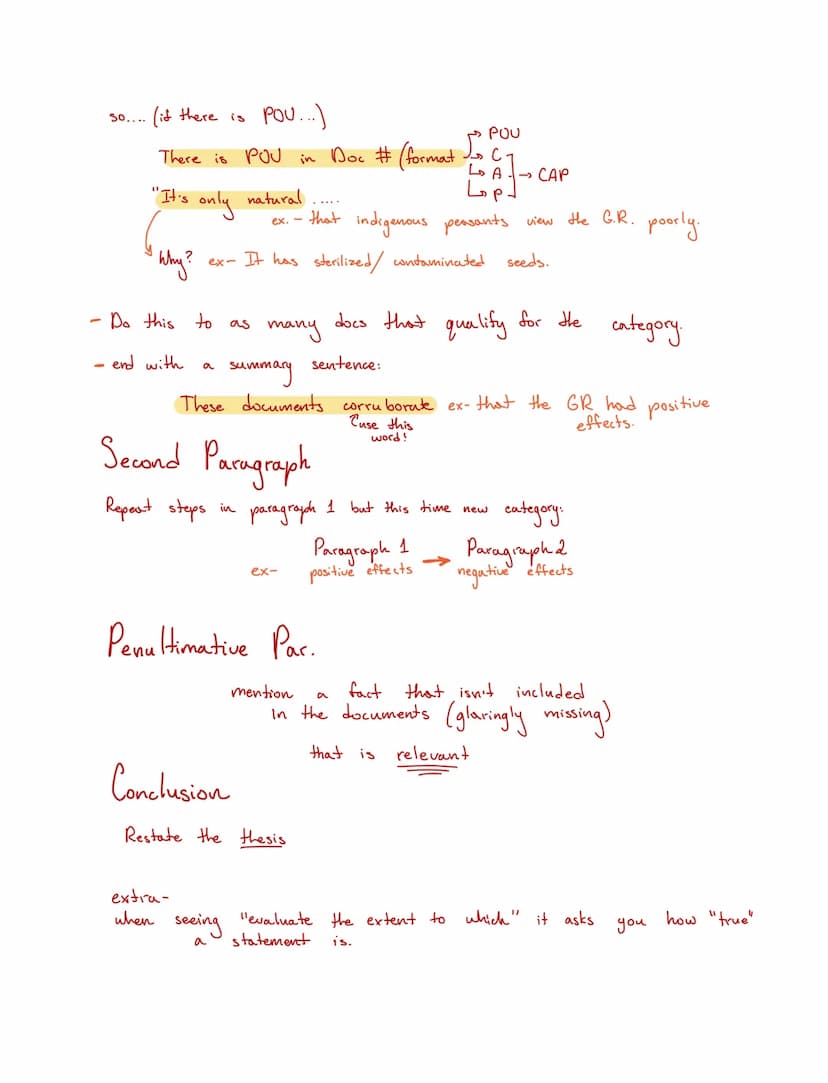 so.... (if there is POU...)
There is POU in Doc # (format → POU
→ C
→ A → CAP
→ P
"It's only natural .....
ex. - that indigenous peasants view the G.R. poorly.
Why? ex- It has sterilized/ contaminated seeds.
- Do this to as many docs that qualify for the category.
- end with a summary sentence:
These documents corruborate ex- that the GR had positive
effects.
use this
word!
Second Paragraph
Repeat steps in paragraph 1 but this time new category:
Paragraph 1 → Paragraph 2
ex- positive effects negative effects
Penultimative Par.
mention a fact that isn't included
in the documents (glaringly missing)
that is relevant
Conclusion
Restate the thesis
extra-
when seeing "evaluate the extent to which" it asks you how "true"
a statement is.